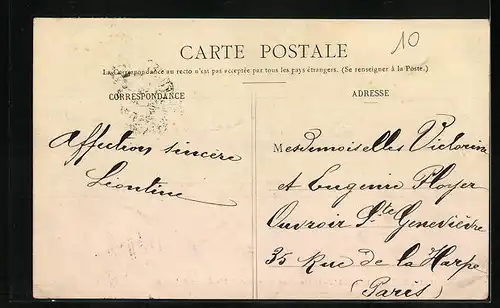 CARTE POSTALE
10
La Correspondance au recto n'est pas acceptée par tous les pays étrangers. (Se renseigner à la Poste.)
CORRESPONDANCE
ADRESSE
Affection sincère
Léontine
Mesdemoiselles Victorine
et Eugenie Ployer
Ouvroir Ste Geneviève
35 Rue de la Harpe
(Paris)